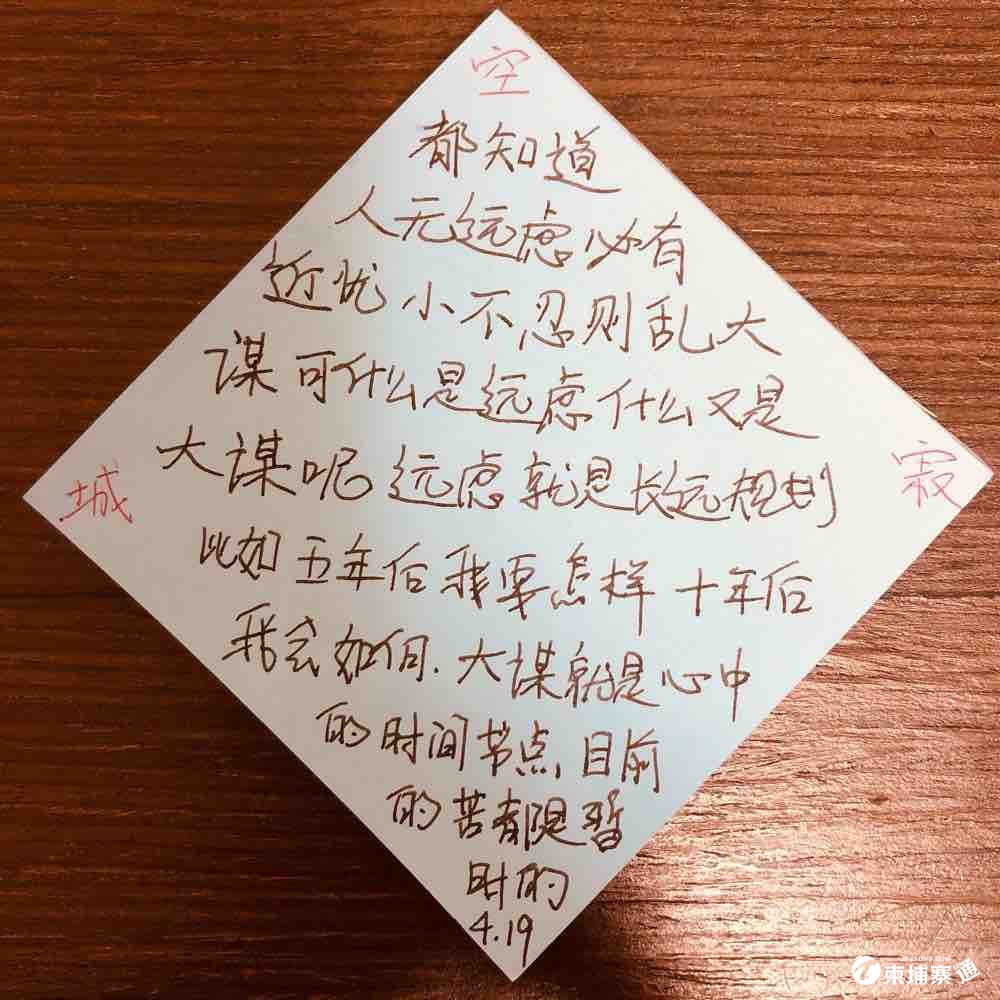 空
都知道
人无远虑必有
近忧 小不忍则乱大
谋 可什么是远虑 什么又是
大谋呢 远虑就是长远规划
城
寂
比如五年后我要怎样 十年后
我会如何.大谋就是心中
的时间节点 目前
的苦都是暂
时的
4.19
柬埔寨通